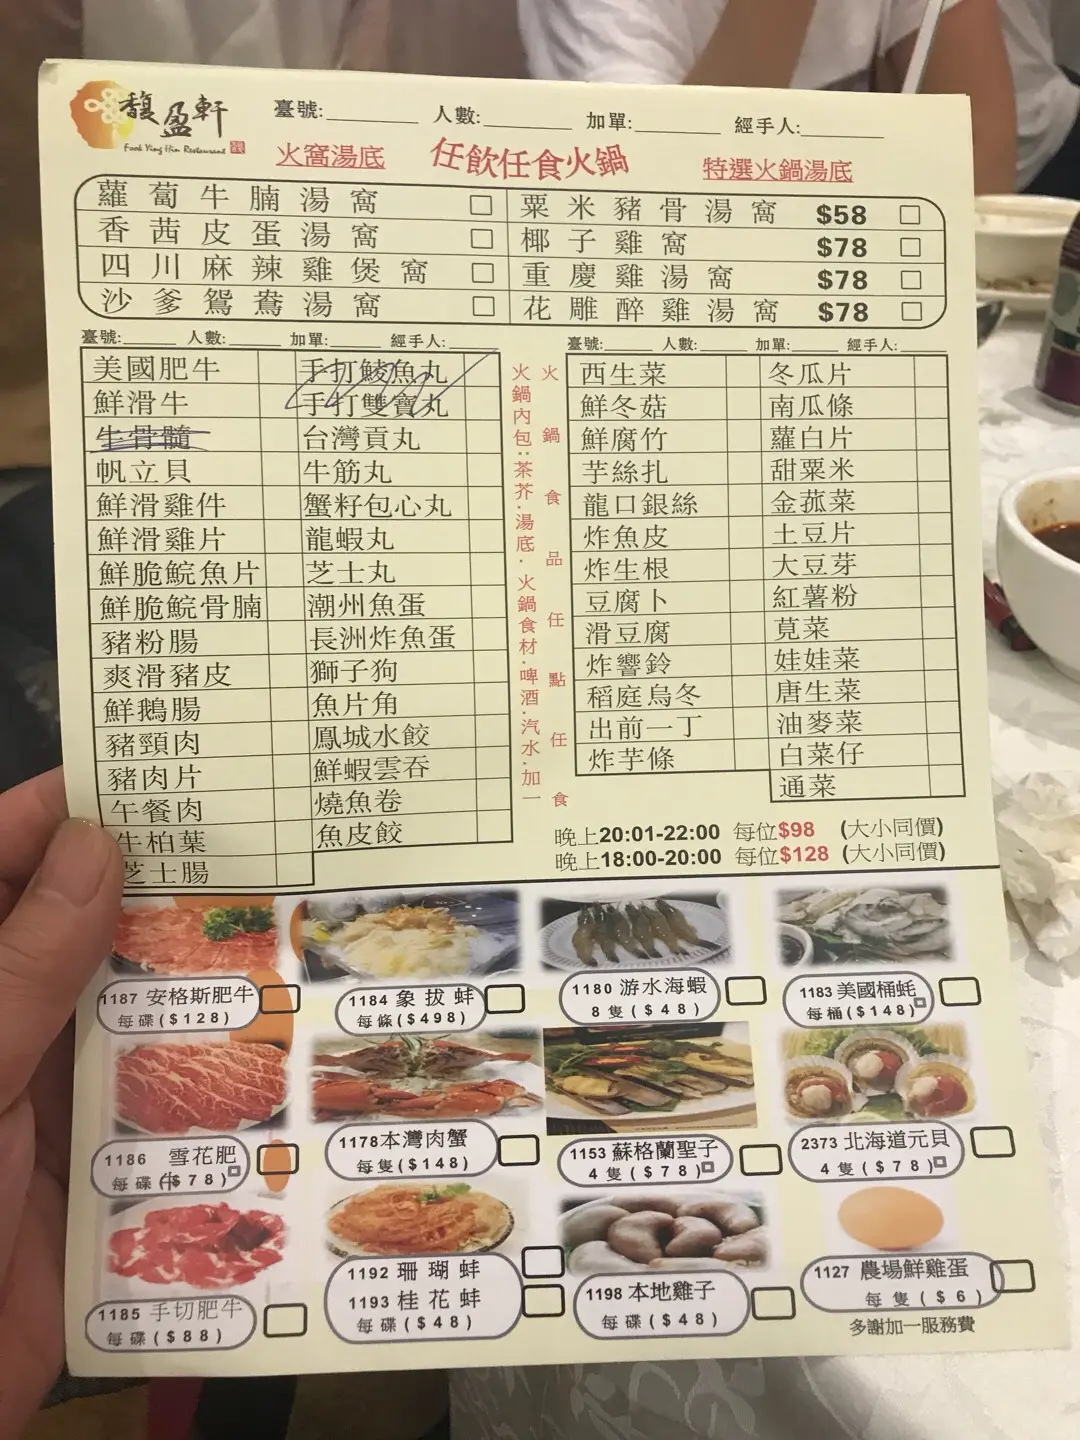 馥盈軒
Fook Ying Hin Restaurant
臺號: 人數: 加單: 經手人:
火窩湯底 任飲任食火鍋 特選火鍋湯底
蘿蔔牛腩湯窩 粟米豬骨湯窩 $58
香茜皮蛋湯窩 椰子雞窩 $78
四川麻辣雞煲窩 重慶雞湯窩 $78
沙爹鴛鴦湯窩 花雕醉雞湯窩 $78
臺號: 人數: 加單: 經手人:
美國肥牛 手打鯪魚丸
鮮滑牛 手打雙寶丸
牛骨髓 台灣貢丸
帆立貝 牛筋丸
鮮滑雞件 蟹籽包心丸
鮮滑雞片 龍蝦丸
鮮脆鯇魚片 芝士丸
鮮脆鯇骨腩 潮州魚蛋
豬粉腸 長洲炸魚蛋
爽滑豬皮 獅子狗
鮮鵝腸 魚片角
豬頸肉 鳳城水餃
豬肉片 鮮蝦雲吞
午餐肉 燒魚卷
牛柏葉 魚皮餃
芝士腸
火鍋內包:茶芥.湯底.火鍋食材.啤酒.汽水.加一
火鍋食品任點任食
臺號: 人數: 加單: 經手人:
西生菜 冬瓜片
鮮冬菇 南瓜條
鮮腐竹 蘿白片
芋絲扎 甜粟米
龍口銀絲 金菰菜
炸魚皮 土豆片
炸生根 大豆芽
豆腐卜 紅薯粉
滑豆腐 莧菜
炸響鈴 娃娃菜
稻庭烏冬 唐生菜
出前一丁 油麥菜
炸芋條 白菜仔
通菜
晚上20:01-22:00 每位$98 (大小同價)
晚上18:00-20:00 每位$128 (大小同價)
1187 安格斯肥牛
每碟($128)
1184 象拔蚌
每條($498)
1180 游水海蝦
8隻($48)
1183 美國桶蚝
每桶($148)
1186 雪花肥牛
每碟($78)
1178 本灣肉蟹
每隻($148)
1153 蘇格蘭聖子
4隻($78)
2373 北海道元貝
4隻($78)
1185 手切肥牛
每碟($88)
1192 珊瑚蚌
1193 桂花蚌
每碟($48)
1198 本地雞子
每碟($48)
1127 農場鮮雞蛋
每隻($6)
多謝加一服務費